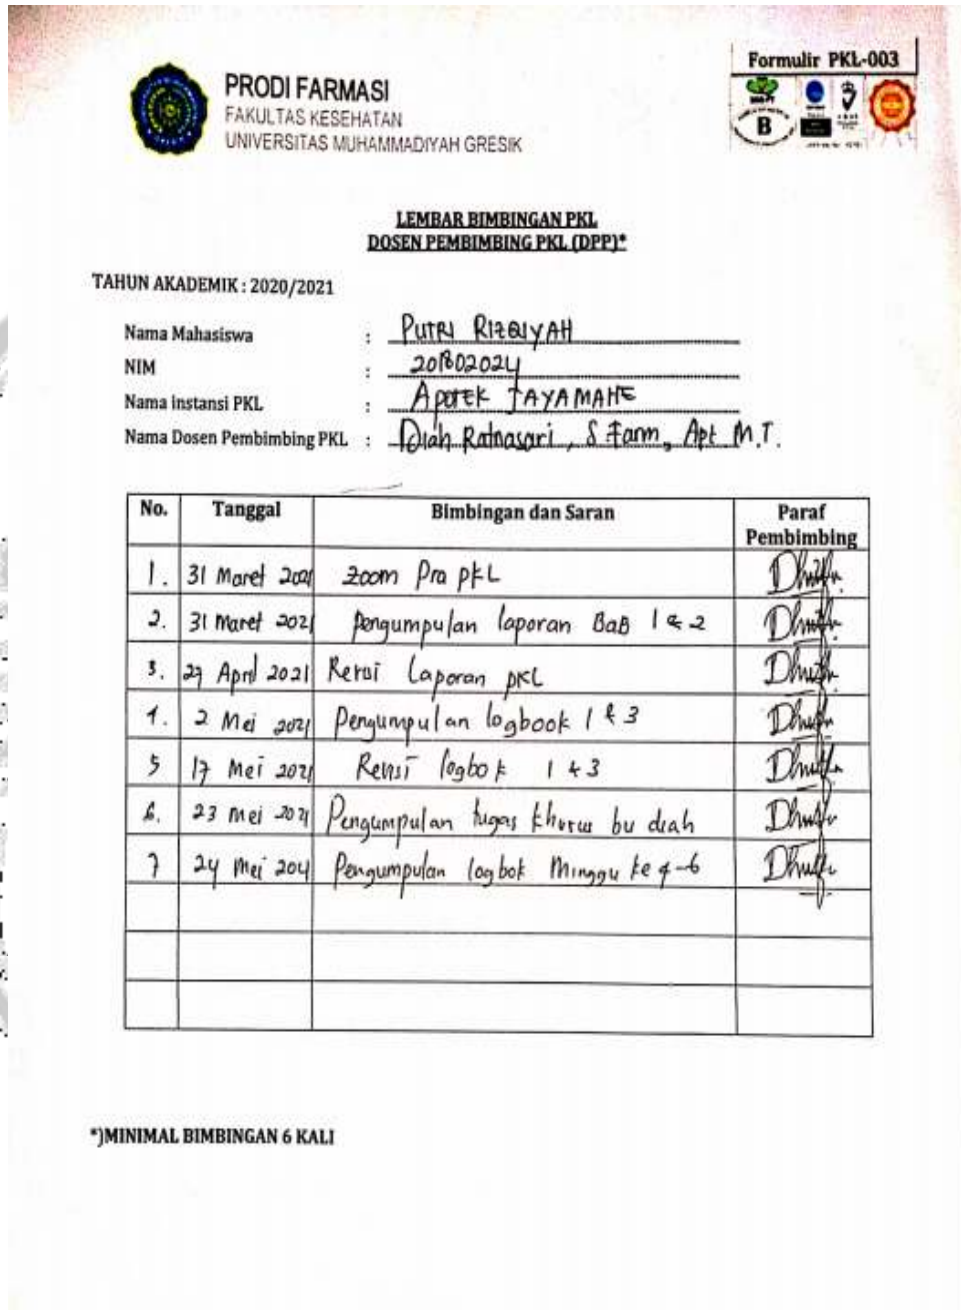 Formulir PKL-003
PRODI FARMASI
FAKULTAS KESEHATAN
UNIVERSITAS MUHAMMADIYAH GRESIK
B
LEMBAR BIMBINGAN PKL
DOSEN PEMBIMBING PKL (DPP)*
TAHUN AKADEMIK : 2020/2021
Nama Mahasiswa : PUTRI RIZQIYAH
NIM : 201802024
Nama instansi PKL : APOTEK JAYAMAHE
Nama Dosen Pembimbing PKL : Diah Ratnasari, S Farm, Apt M.T.
No. Tanggal Bimbingan dan Saran Paraf Pembimbing
1. 31 Maret 2021 Zoom Pra PKL
2. 31 Maret 2021 Pengumpulan laporan BaB 1 & 2
3. 27 April 2021 Revisi Laporan PKL
4. 2 Mei 2021 Pengumpulan logbook 1 & 3
5 17 Mei 2021 Revisi logbok 1 & 3
6. 23 Mei 2021 Pengumpulan tugas khusus bu diah
7 24 Mei 2021 Pengumpulan logbok Minggu ke 4-6
*)MINIMAL BIMBINGAN 6 KALI